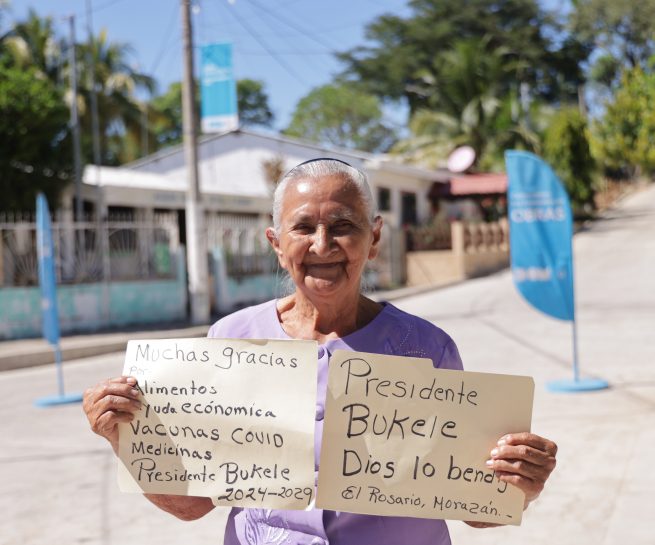 Muchas gracias
Por
Alimentos
Ayuda económica
Vacunas COVID
Medicinas
Presidente Bukele
2024-2029
Presidente
Bukele
Dios lo bendi
El Rosario, Morazán.-
OBRAS